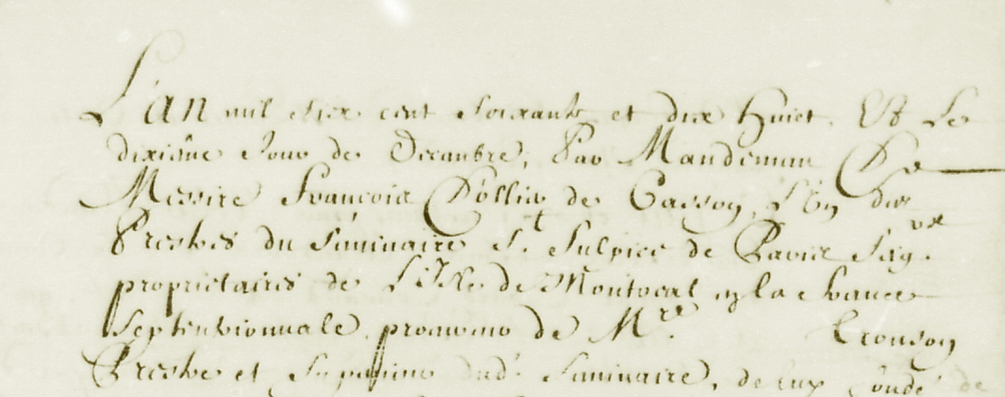 L'an mil six cent soixante et dix huict. Et Le
dixiême Jour de Decembre, Par Mandement De
Messire François Dollier de Casson, L'un des
Prestres du Seminaire St. Sulpice de Paris Seigrs.
proprietaires de L'Isle de Montreal en la France
Septentrionnale, procureur de Mre. Tronson
Prestre et Superieur dud. Seminaire, de eux fondé de